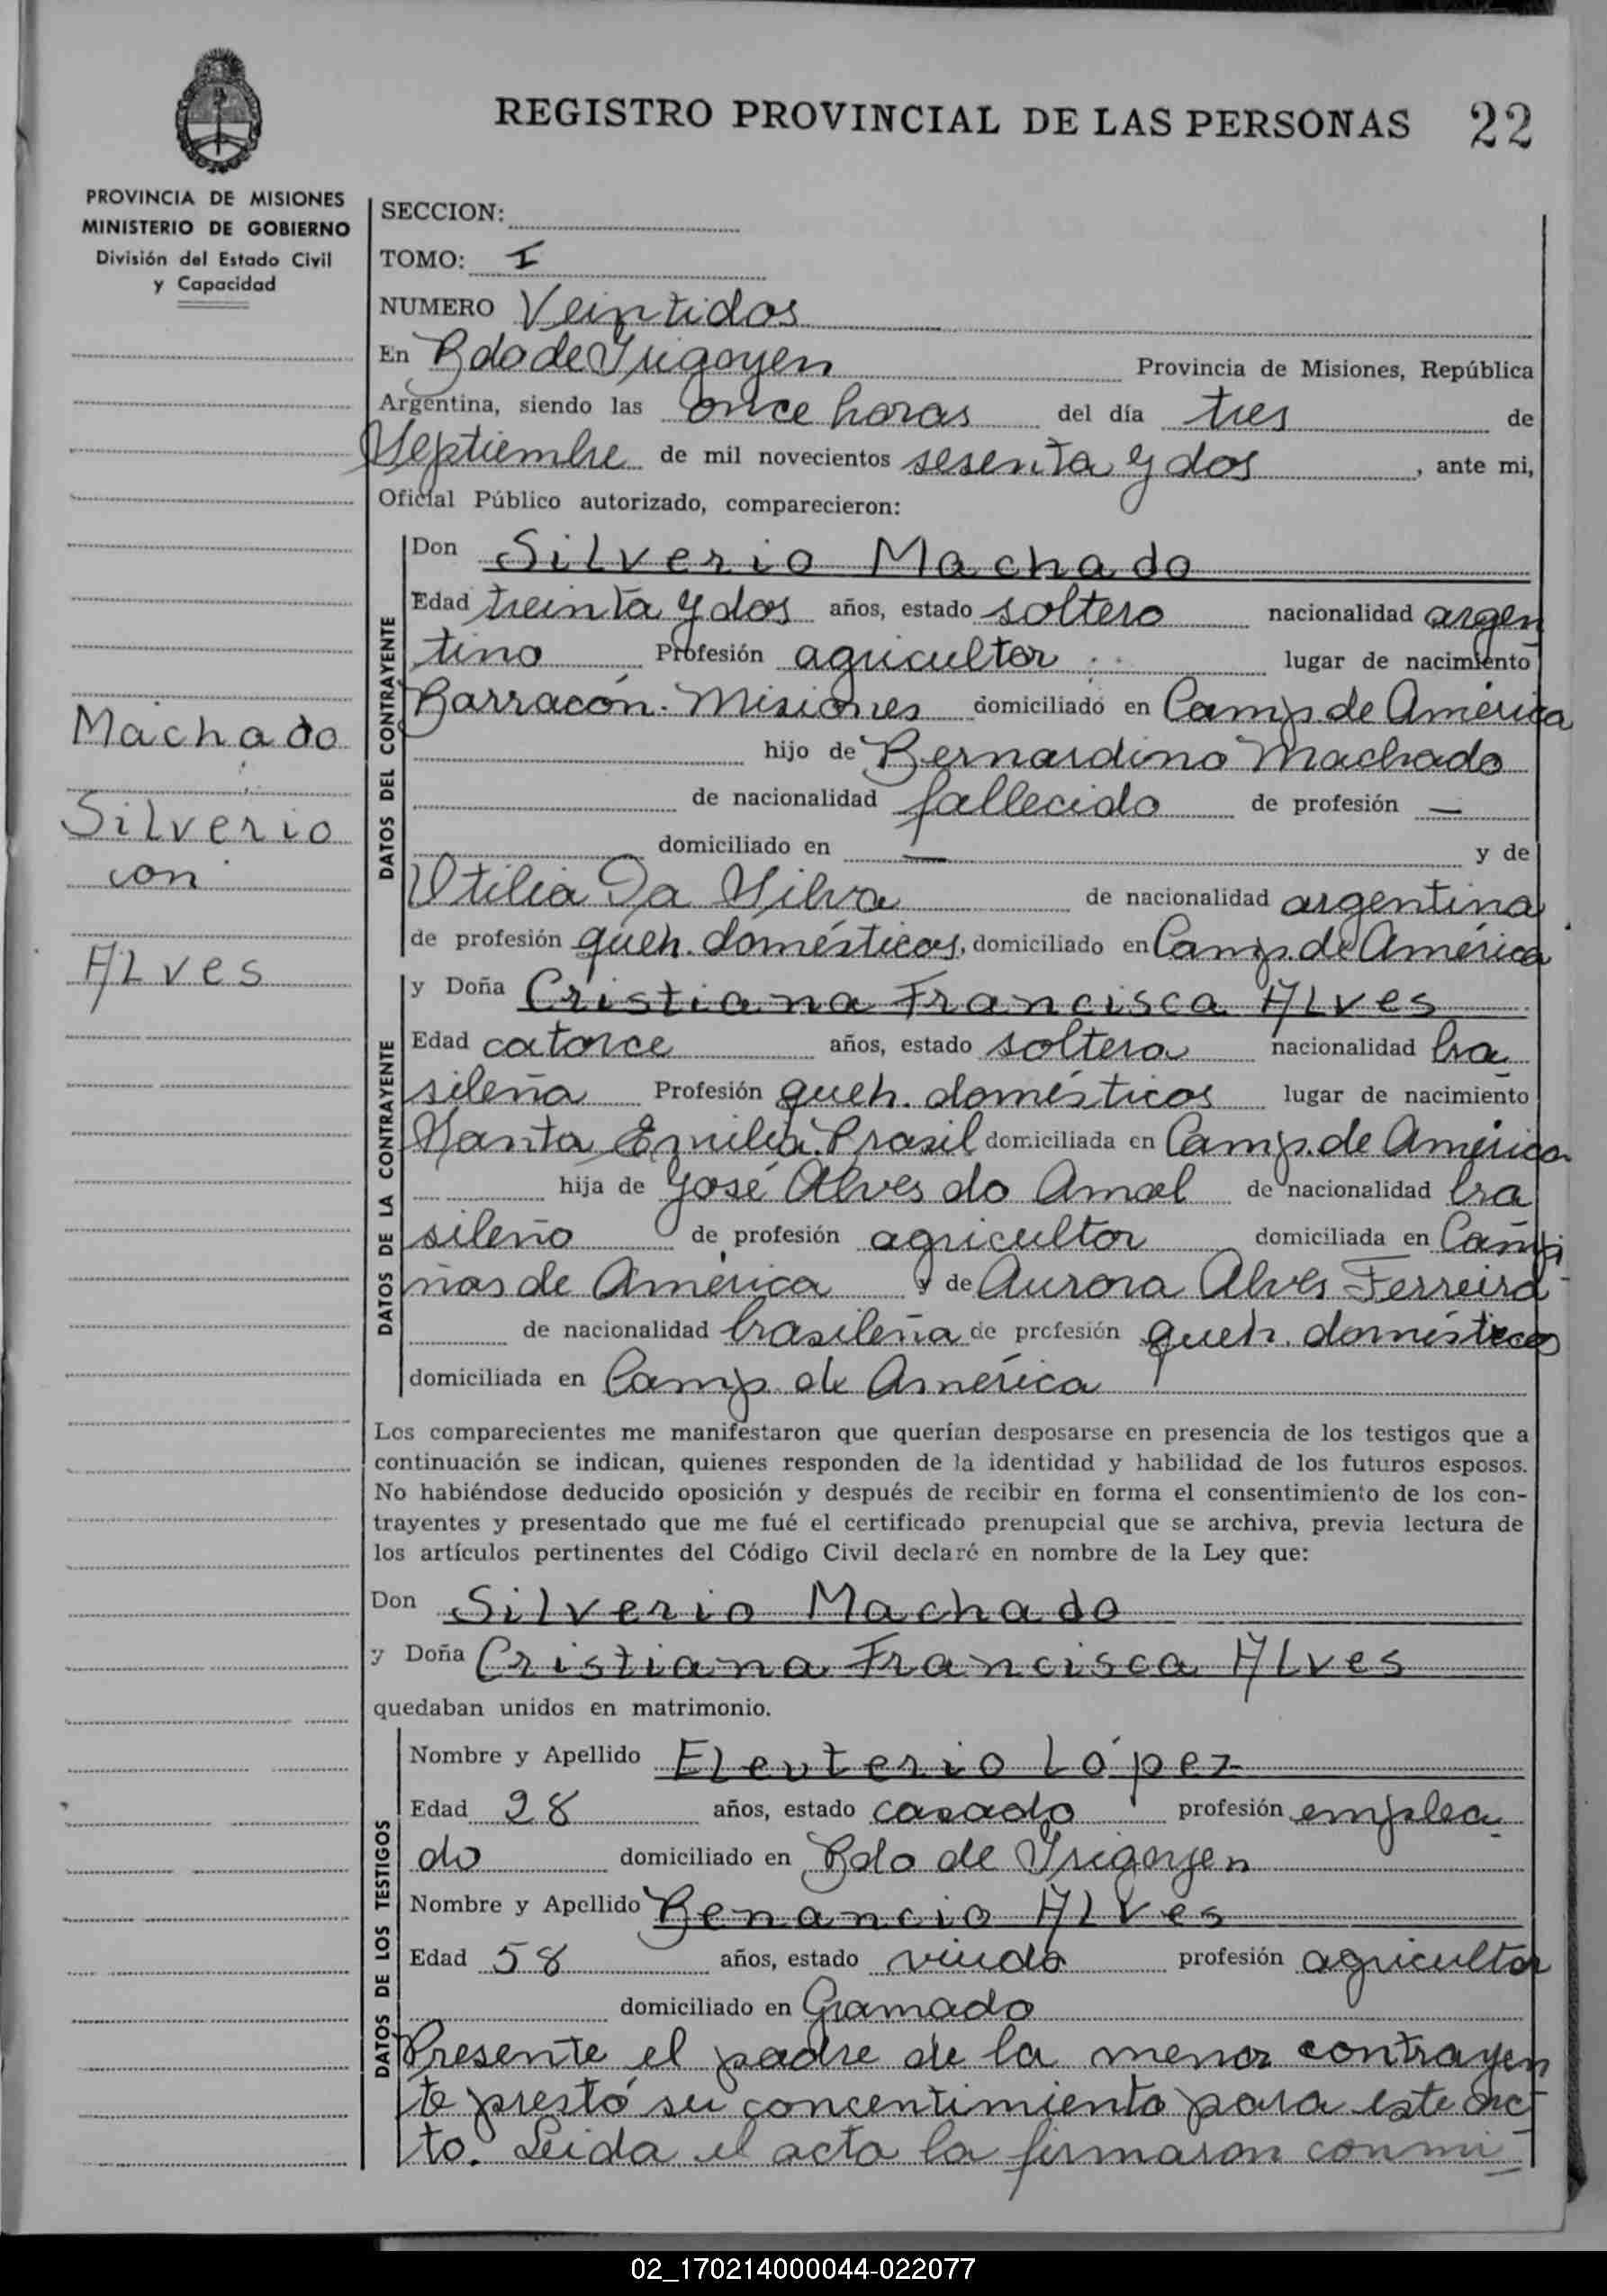 REGISTRO PROVINCIAL DE LAS PERSONAS 22
PROVINCIA DE MISIONES
MINISTERIO DE GOBIERNO
División del Estado Civil
y Capacidad
SECCION:
TOMO: I
NUMERO Veintidos
En Bdo de Yrigoyen Provincia de Misiones, República
Argentina, siendo las once horas del día tres de
Septiembre de mil novecientos sesenta y dos, ante mi,
Oficial Público autorizado, comparecieron:
Machado
Silverio
con
Alves
DATOS DEL CONTRAYENTE
Don Silverio Machado
Edad treinta y dos años, estado soltero nacionalidad argen
tino Profesión agricultor lugar de nacimiento
Barracón. Misiones domiciliado en Camp de América
hijo de Bernardino Machado
de nacionalidad fallecido de profesión —
domiciliado en — y de
Utilia Da Silva de nacionalidad argentina
de profesión queh. domésticos, domiciliado en Camp. de América
DATOS DE LA CONTRAYENTE
y Doña Cristiana Francisca Alves
Edad catorce años, estado soltera nacionalidad bra
sileña Profesión queh. domésticos lugar de nacimiento
Santa Emilia. Brasil domiciliada en Camp. de América
hija de José Alves do Amal de nacionalidad bra
sileño de profesión agricultor domiciliada en Campi
ñas de América y de Aurora Alves Ferreira
de nacionalidad brasileña de profesión queh. domésticos
domiciliada en Camp. de América
Los comparecientes me manifestaron que querían desposarse en presencia de los testigos que a
continuación se indican, quienes responden de la identidad y habilidad de los futuros esposos.
No habiéndose deducido oposición y después de recibir en forma el consentimiento de los con-
trayentes y presentado que me fué el certificado prenupcial que se archiva, previa lectura de
los artículos pertinentes del Código Civil declaré en nombre de la Ley que:
Don Silverio Machado
y Doña Cristiana Francisca Alves
quedaban unidos en matrimonio.
DATOS DE LOS TESTIGOS
Nombre y Apellido Eleuterio López
Edad 28 años, estado casado profesión emplea
do domiciliado en Bdo de Yrigoyen
Nombre y Apellido Benancio Alves
Edad 58 años, estado viudo profesión agricultor
domiciliado en Gramado
Presente el padre de la menor contrayen
te prestó su concentimiento para este ac
to. Leida el acta la firmaron con mi
02_170214000044-022077